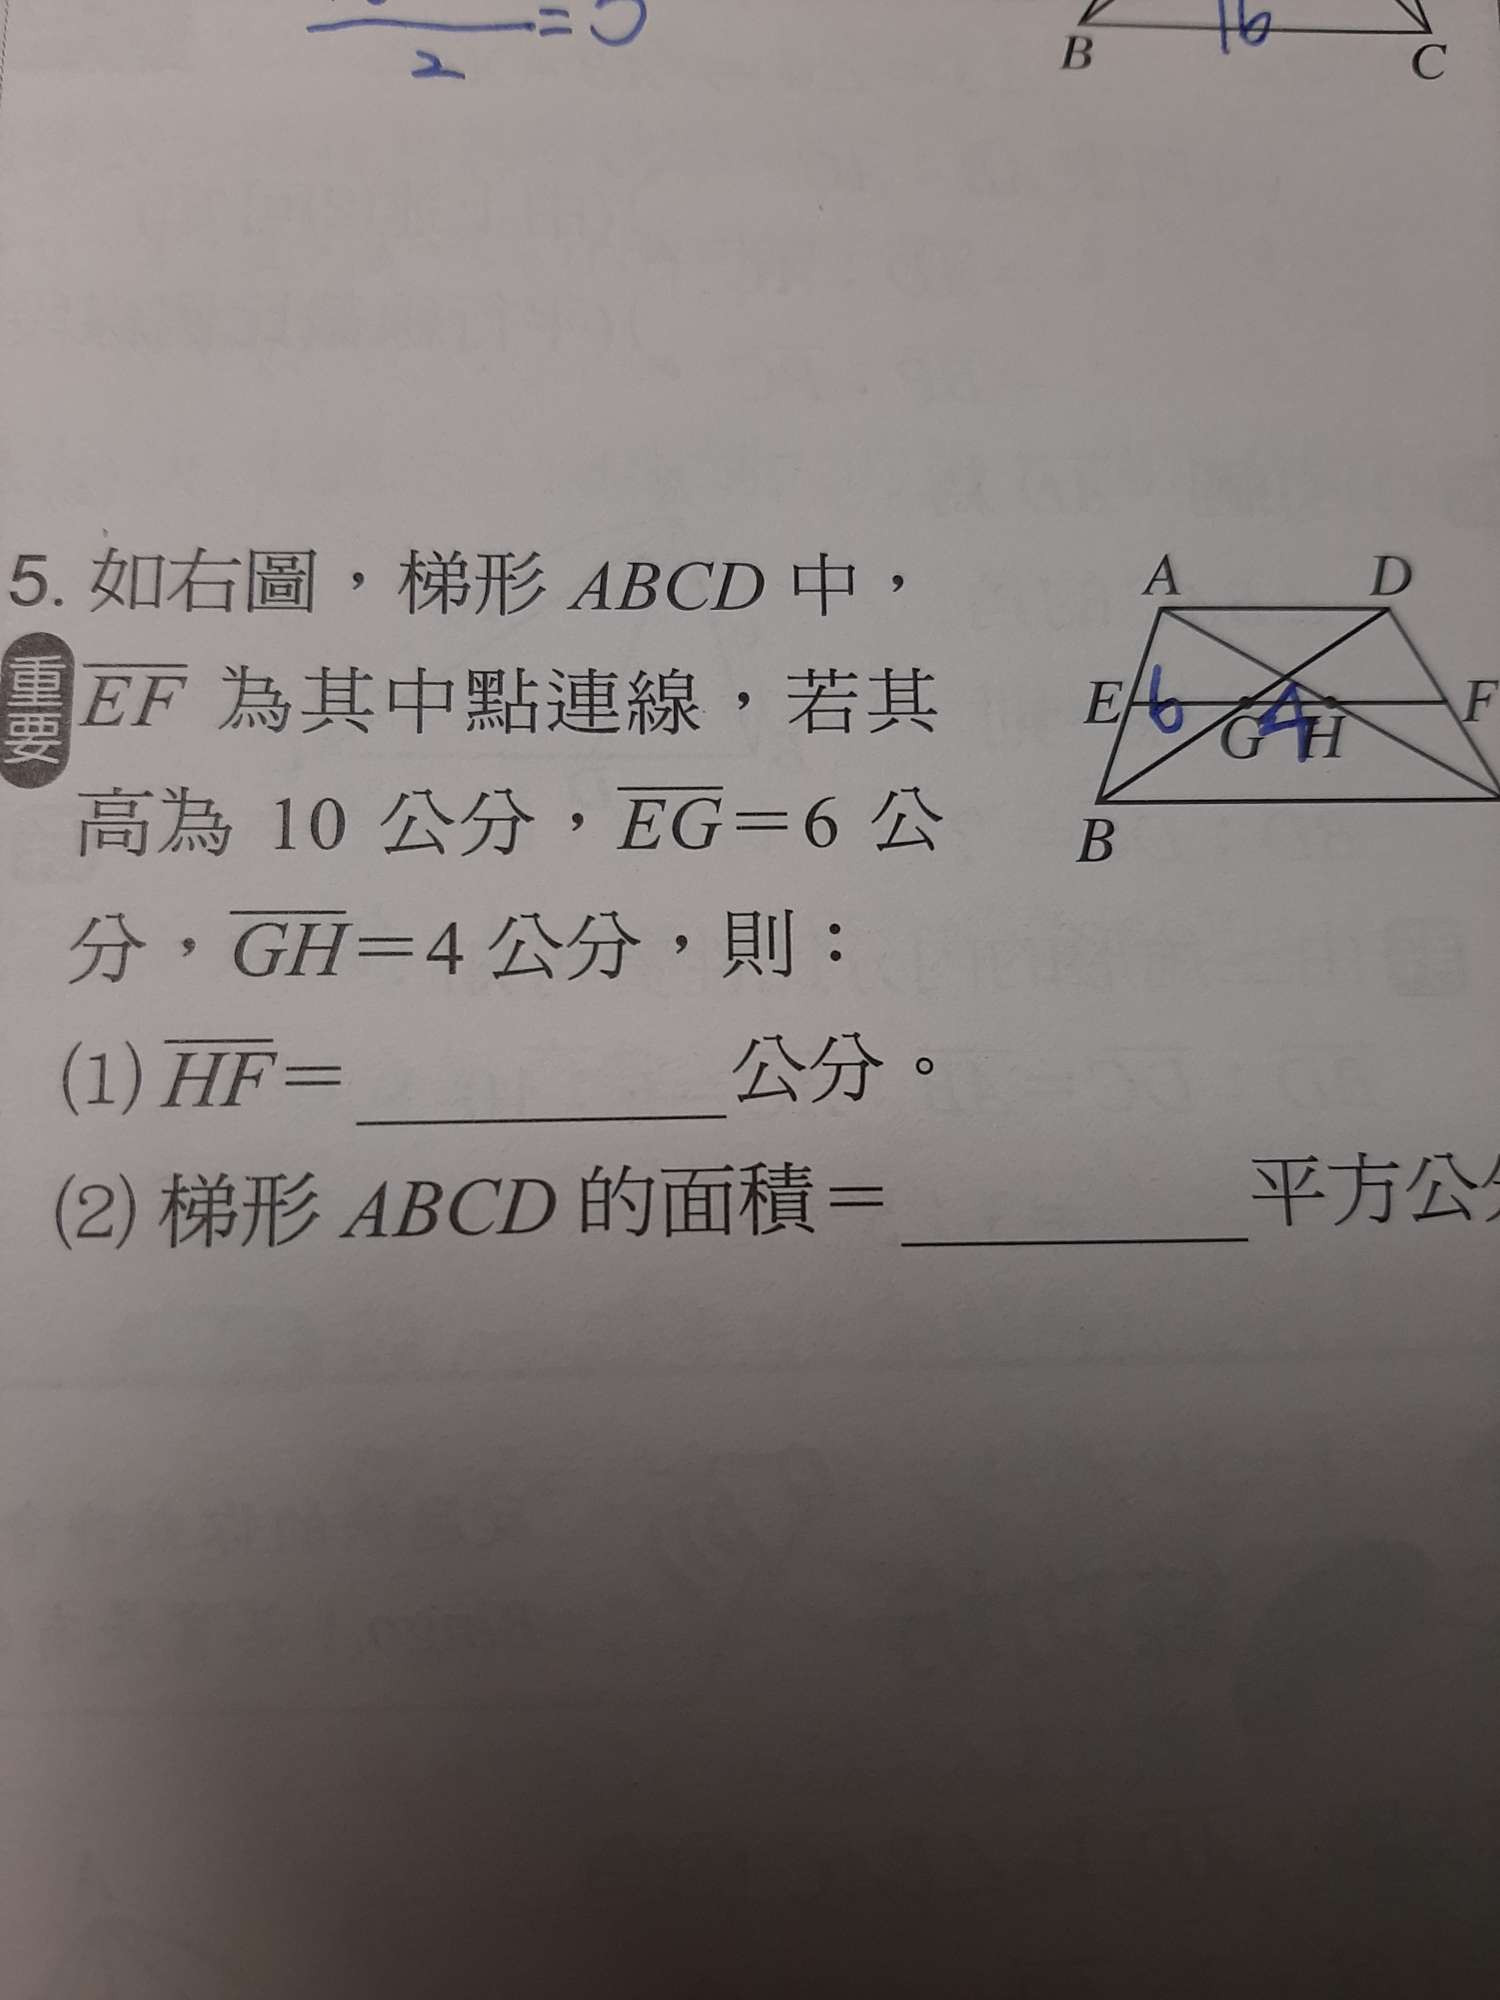 2
=5
16
B
C
5. 如右圖，梯形 ABCD 中，
重要
EF 為其中點連線，若其
高為 10 公分，EG=6 公
分，GH=4 公分，則：
(1) HF= 公分。
(2) 梯形 ABCD 的面積= 平方公分
A
D
E
6
G
4
H
F
B